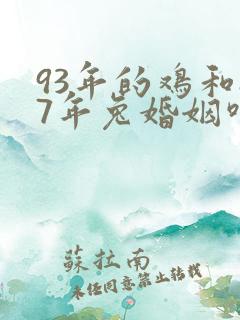 93年的鸡和
7年兔婚姻
蘇拉南
未经同意禁止转载